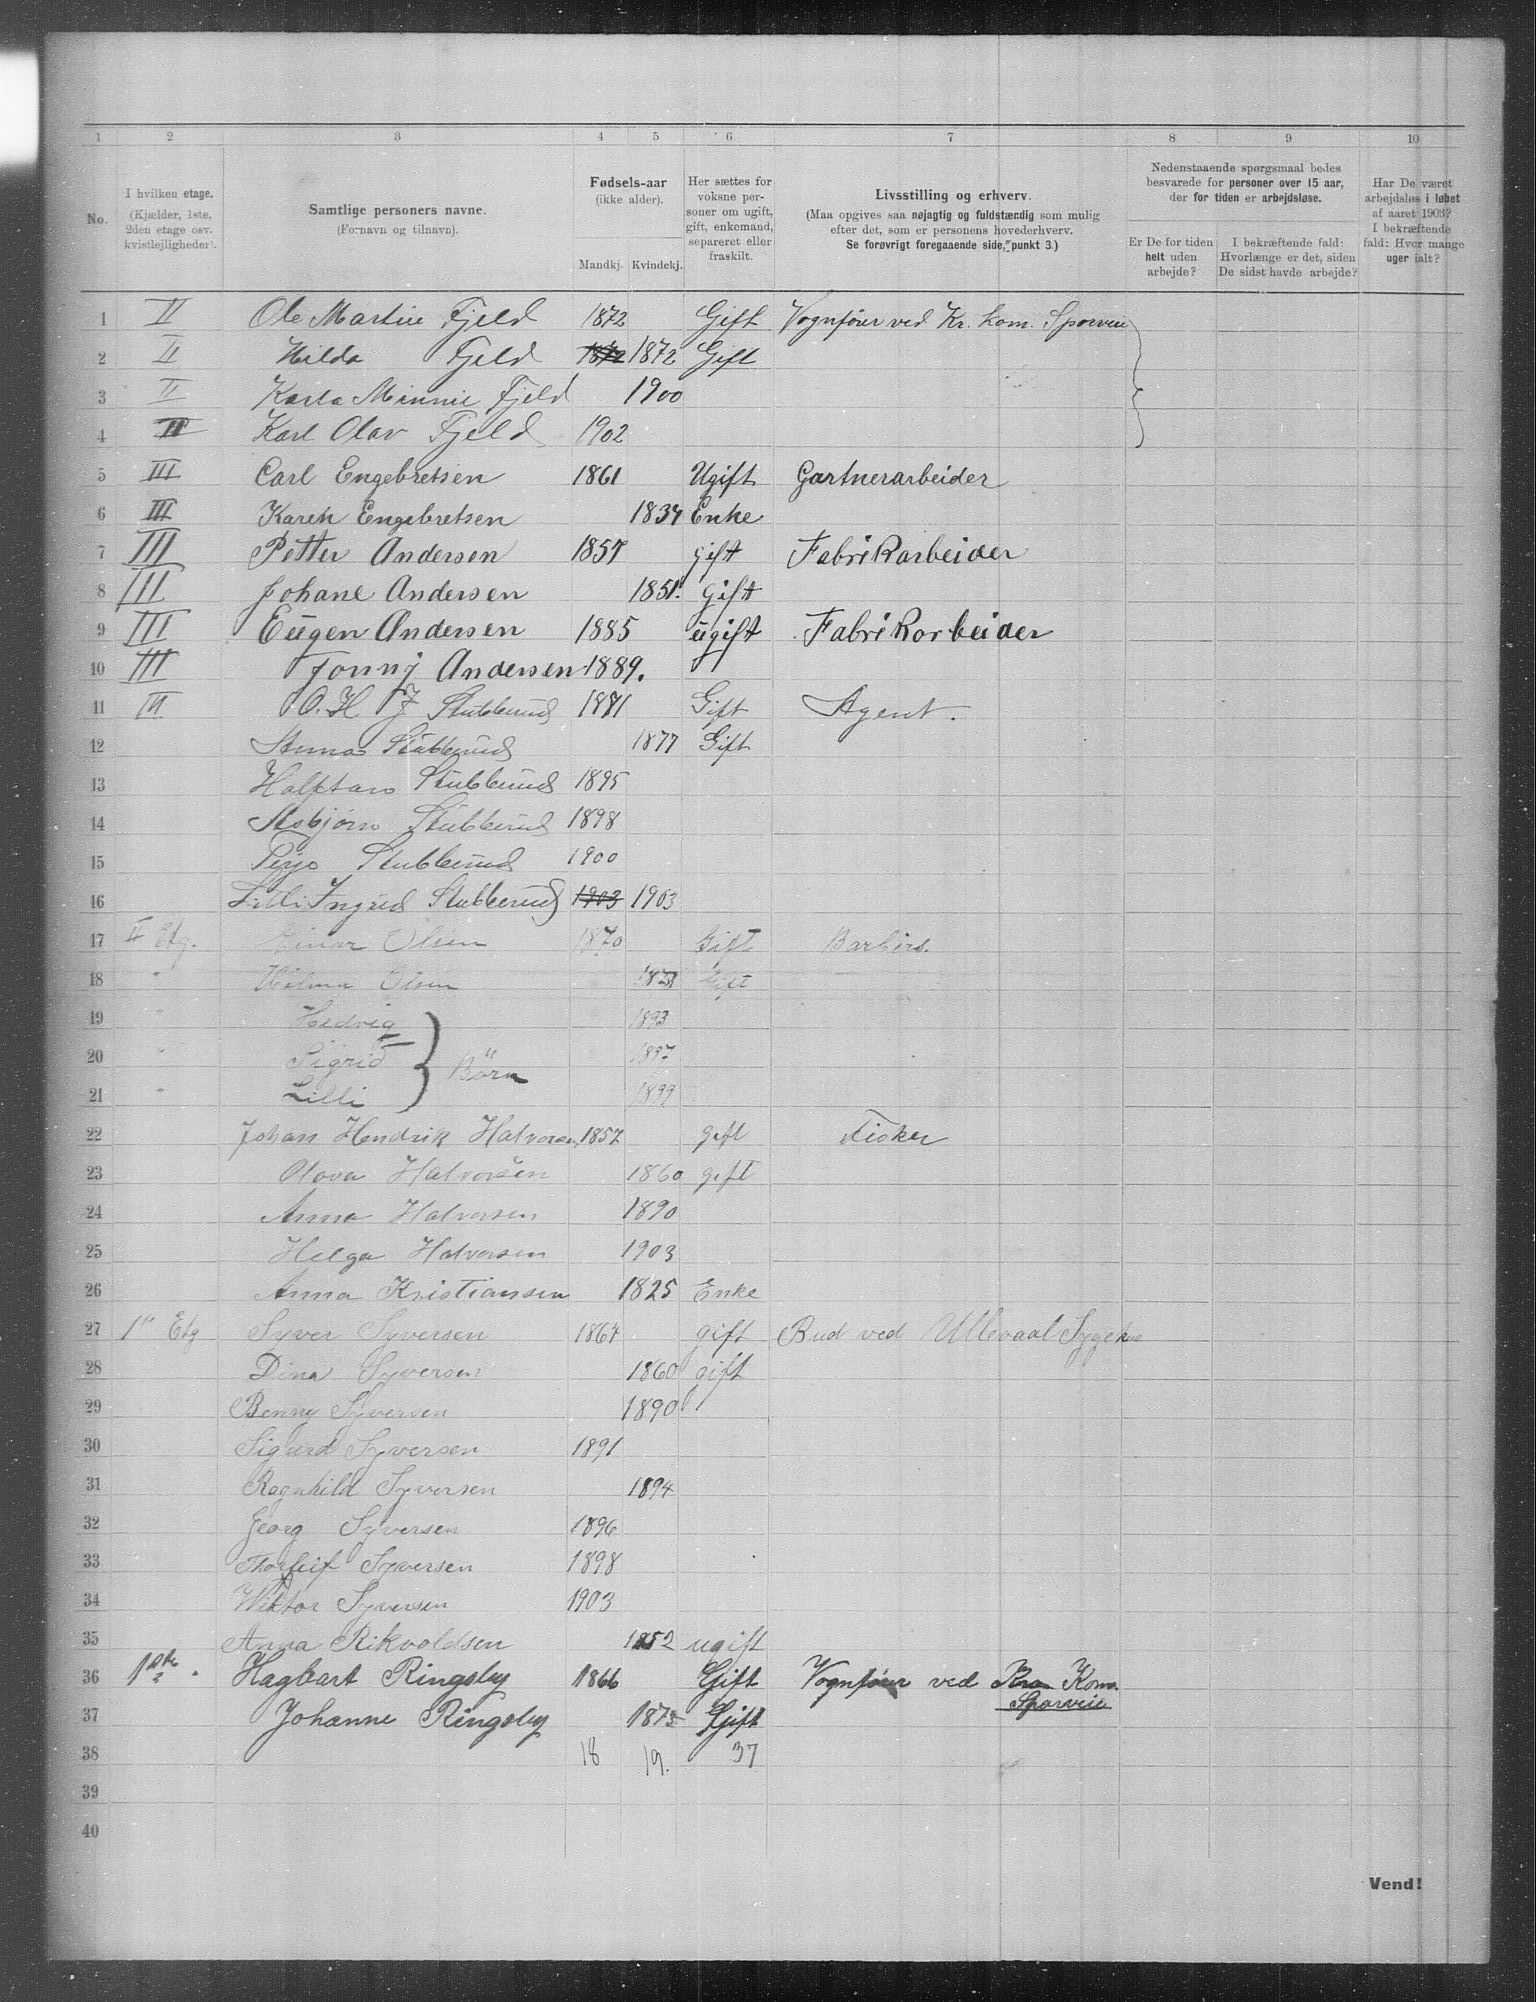 1 2 3 4 5 6 7 8 9 10
No.
I hvilken etage.
(Kjælder, 1ste,
2den etage osv.
kvistlejligheder).
Samtlige personers navne.
(Fornavn og tilnavn).
Fødsels-aar
(ikke alder).
Mandkj. Kvindekj.
Her sættes for
voksne per-
soner om ugift,
gift, enkemand,
separeret eller
fraskilt.
Livsstilling og erhverv.
(Maa opgives saa nøjagtig og fuldstændig som mulig
efter det, som er personens hovederhverv.
Se forøvrigt foregaaende side, punkt 3.)
Nedenstaaende spørgsmaal bedes
besvarede for personer over 15 aar,
der for tiden er arbejdsløse.
Er De for tiden
helt uden
arbejde?
I bekræftende fald:
Hvorlænge er det, siden
De sidst havde arbejde?
Har De været
arbejdsløs i løbet
af aaret 1903?
I bekræftende
fald: Hvor mange
uger ialt?
1 II Ole Martin Fjeld 1872 Gift Vognfører ved Kr. Kom. Sporvei
2 II Hilda Fjeld 1872 1872 Gift
3 II Karla Minnie Fjeld 1900
4 II Karl Olav Fjeld 1902
5 III Carl Engebretsen 1861 Ugift Gartnerarbeider
6 III Karen Engebretsen 1834 Enke
7 III Petter Andersen 1857 gift Fabrikarbeider
8 III Johane Andersen 1851. gift
9 III Eugen Andersen 1885 ugift Fabrikarbeider
10 III Jonny Andersen 1889.
11 III O. H. J Stubberud 1871 Gift Agent.
12 Anna Stubberud 1877 Gift
13 Halftan Stubberud 1895
14 Asbjørn Stubberud 1898
15 Stubberud 1900
16 Lilli Ingrid Stubberud 1903 1903
17 II Etg. Einar Olsen 1870 Gift Barber.
18 " Hilma Olsen Gift
19 " Hedvig 1893
20 " Sigrid Börn 1897
21 " Lilli 1899
22 Johan Hendrik Halvorsen 1857 gift Fisker
23 Olava Halvorsen 1860 gift
24 Anna Halvorsen 1890
25 Helga Halvorsen 1903
26 Anna Kristiansen 1825 Enke
27 1ste Etg Syver Syversen 1864 gift Bud ved Ullevaal Sygehus
28 Dina Syversen 1860 gift
29 Benny Syversen 1890
30 Sigurd Syversen 1891
31 Ragnhild Syversen 1894
32 Georg Syversen 1896
33 Thorleif Syversen 1898
34 Wiktor Syversen 1903
35 Anna Rikvoldsen 1852 ugift
36 1ste " Hagbart Ringsby 1866 Gift Vognfører ved Kra Kom.
Sporveie
37 Johanne Ringsby 1875 Gift
38 18 19. 37
39
40
Vend!